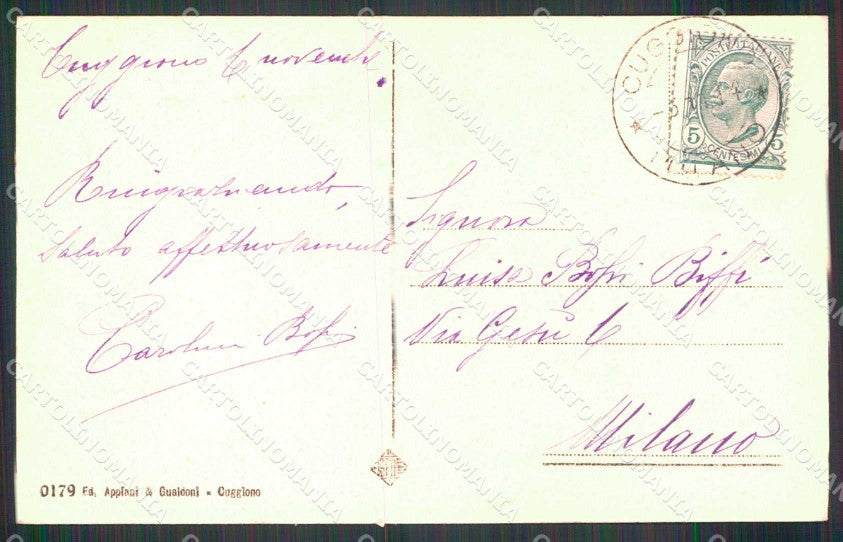 Cuggiono 6 novembre.
Ringraziando,
saluto affettuosamente
Carolina Bossi
0179 Ed. Appiani & Gualdoni - Cuggiono
POSTE ITALIANE
5 5
CENTESIMI
CUGGIONO
Signora
Luisa Bossi Biffi
Via Gesù 6
Milano
CARTOLINOMANIA